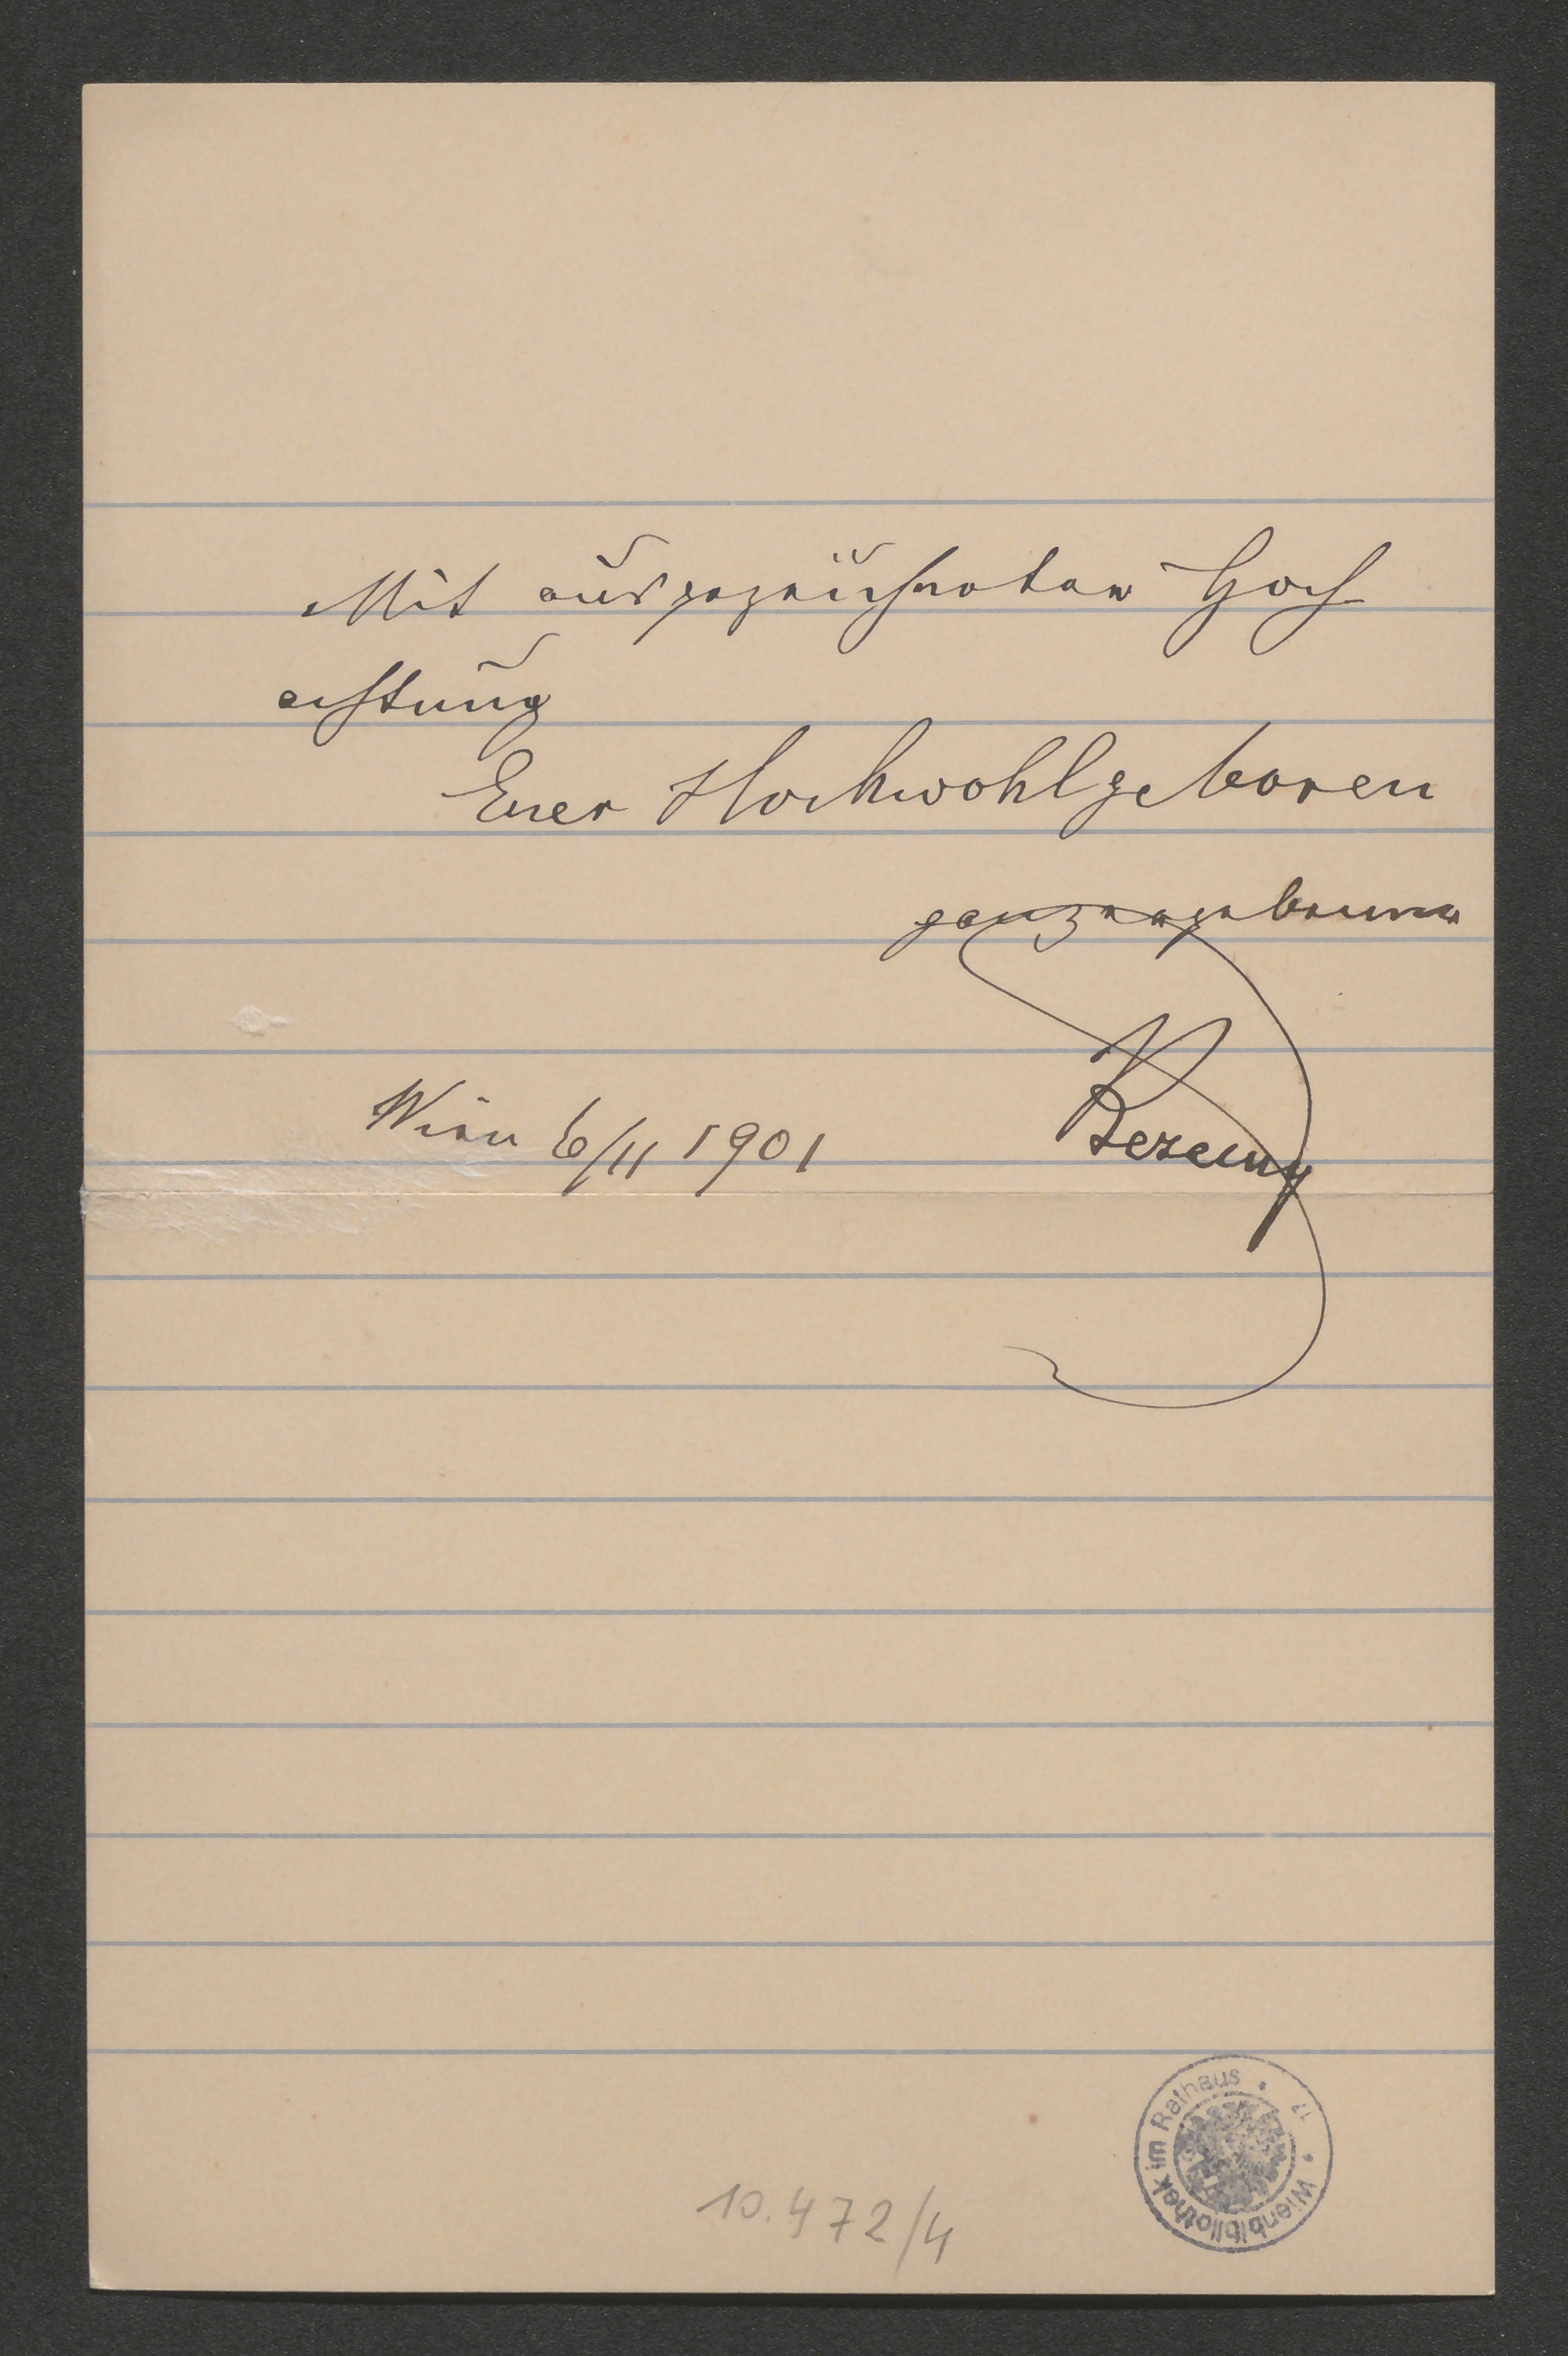 Mit ausgezeichneter Hoch
achtung
Euer Hochwohlgeboren
ganz ergebener
Bezecny
Wien 6/11 1901
10.472/4
Wienbibliothek im Rathaus